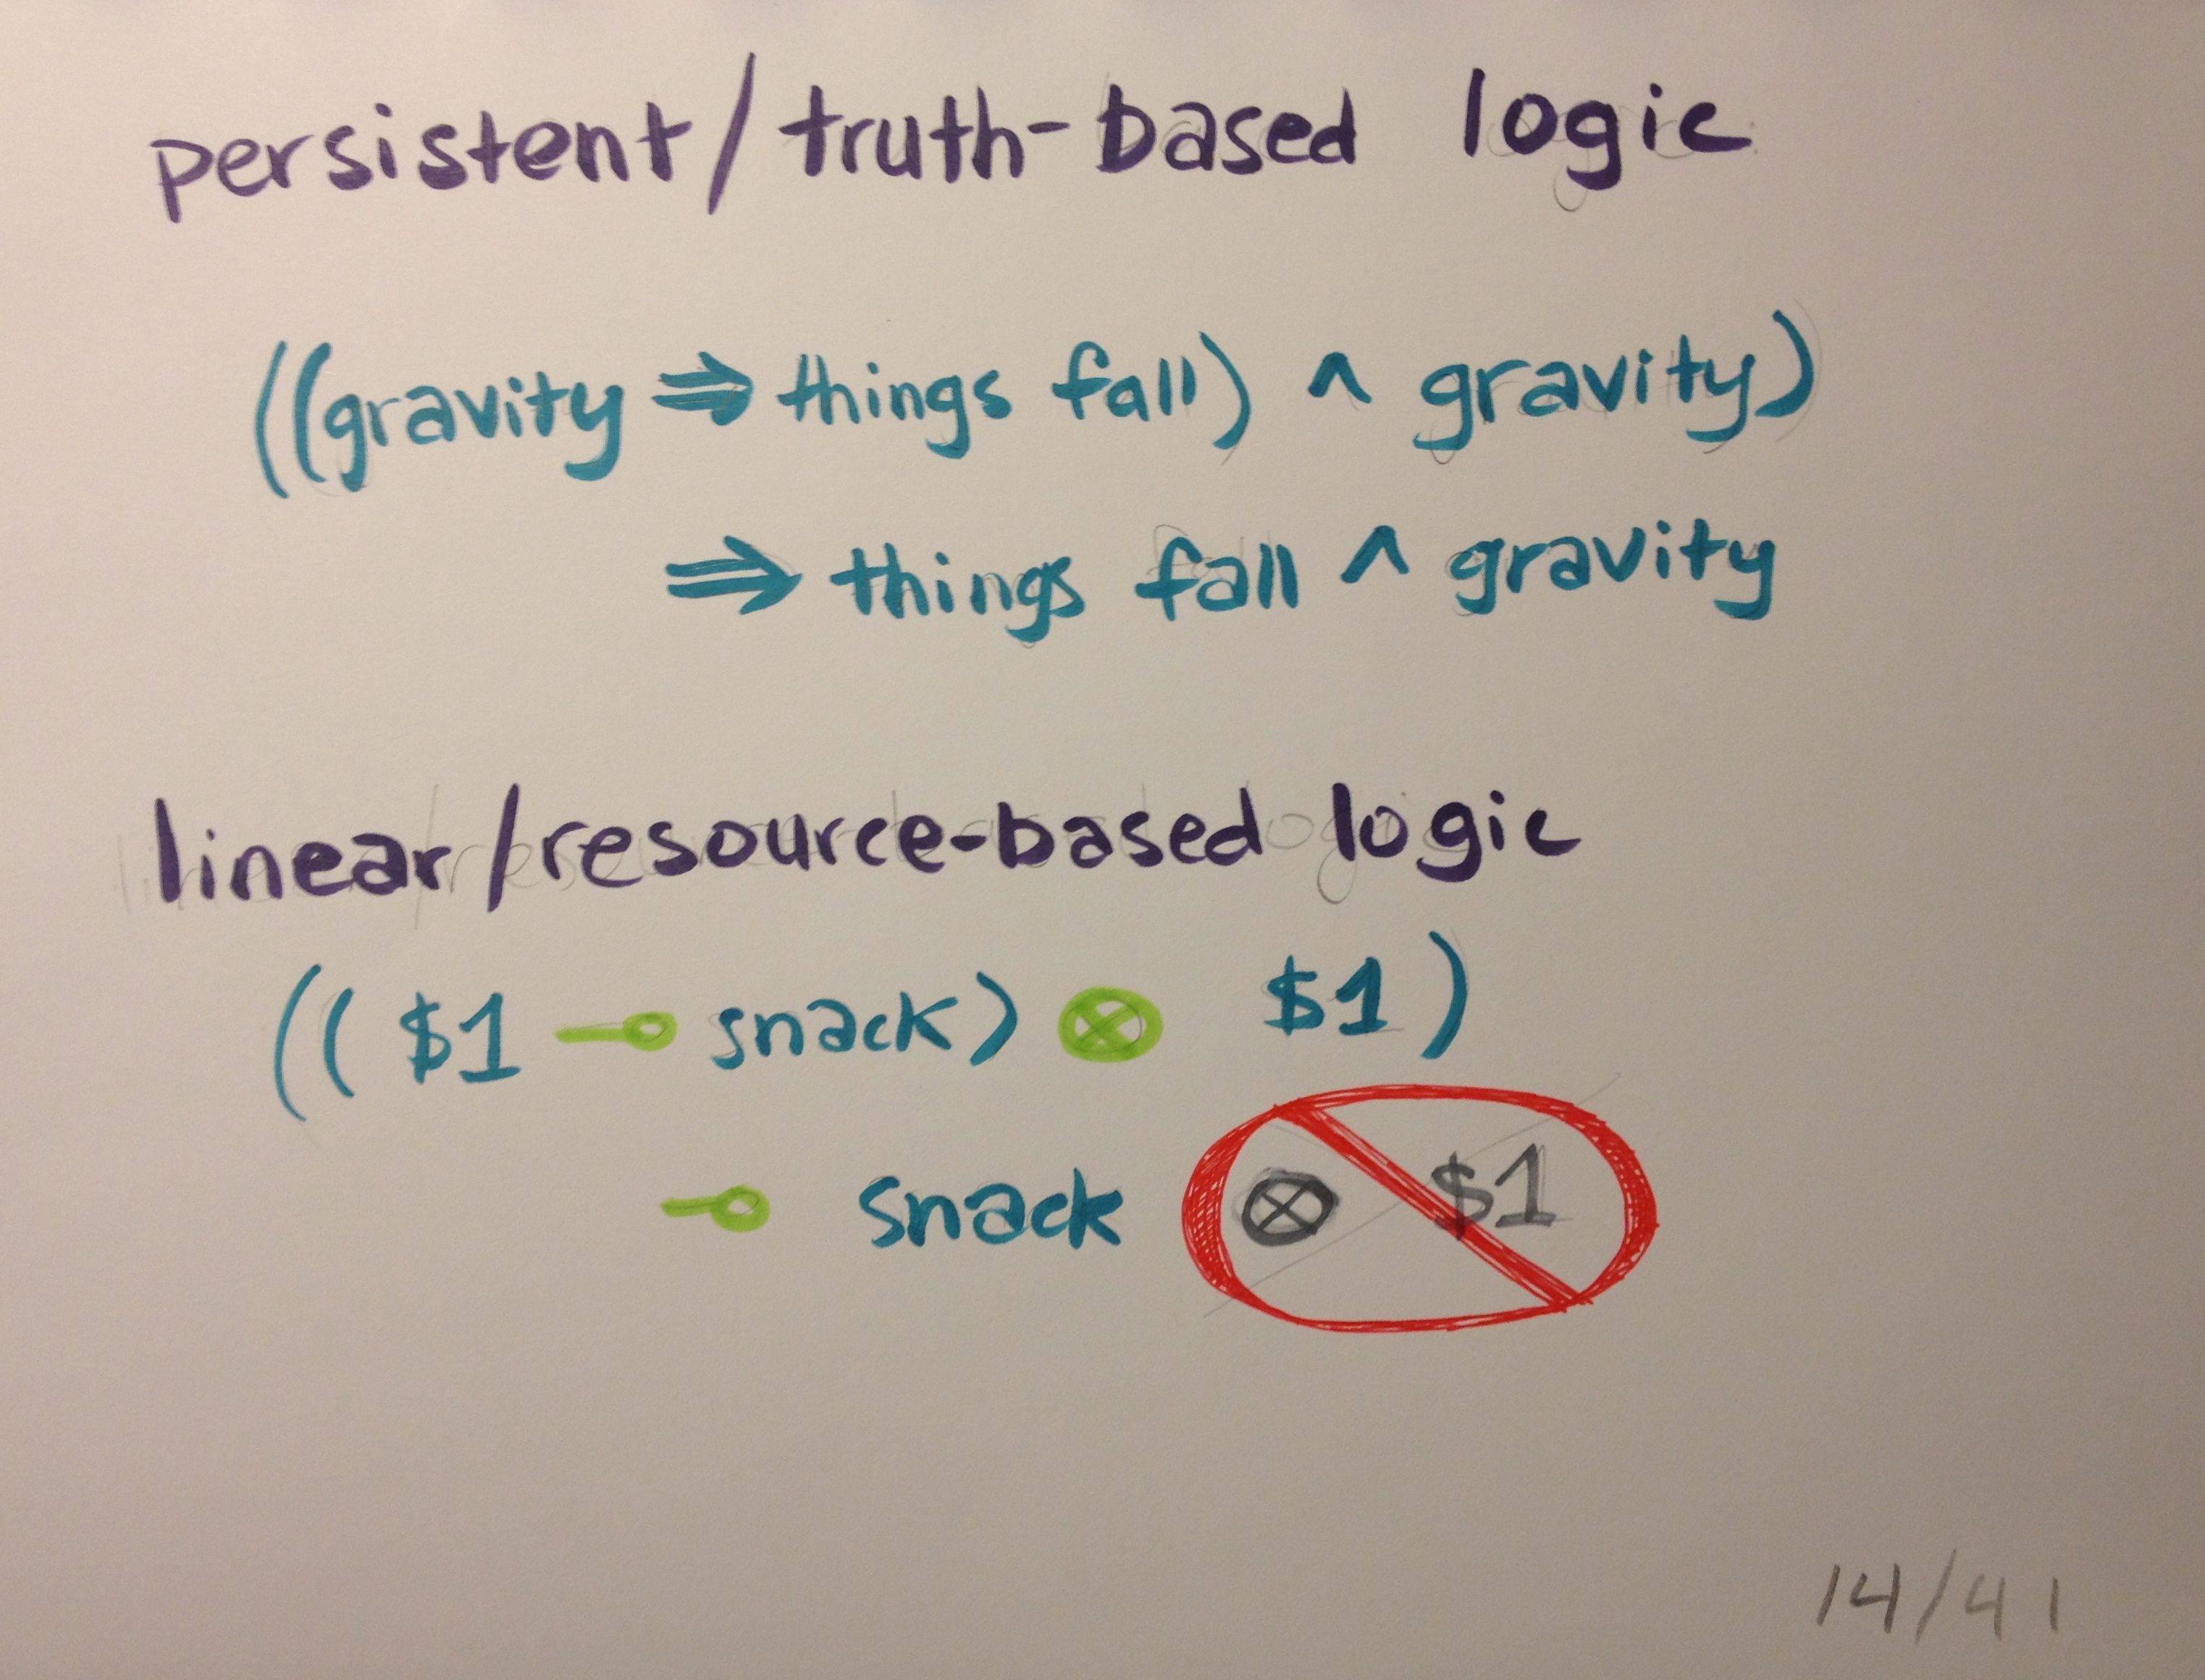 persistent/truth-based logic
((gravity ⇒ things fall) ∧ gravity)
⇒ things fall ∧ gravity
linear/resource-based logic
(($1 ⊸ snack) ⊗ $1)
⊸ snack ⊗ $1
14/41